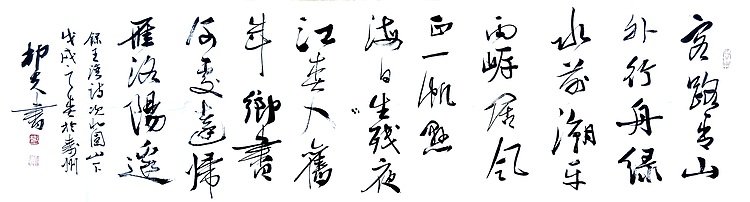 客路青山
外行舟綠
水前潮平
兩岸闊風
正一帆懸
海日生殘夜
江春入舊
年鄉書
何處達歸
雁洛陽邊
錄王灣詩次北固山下
戊戌春於壽州
書